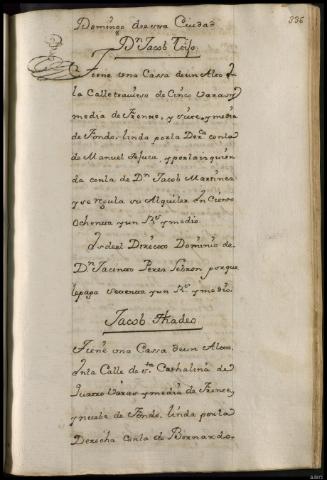 336
Domingo de esta Ciudad
Dn Jacob Teiso
Tiene una Cassa de un Alto
la Calle traviesa de Cinco Varas y
media de Frente, y once y media
de Fondo. linda por la Dra con la
de Manuel de Juca, y por la izquier
da con la de Dn Jacob Martinez
y se regula su Alquiler en Ciento
ochenta y un Rs y medio
Es de el Directo Dominio de
Dn Jacinto Perez porque
le paga setenta y un Rs y medio
Jacob Thadeo
Tiene una Cassa de un Alto,
Enla Calle de sta Cathalina de
Quatro Varas y media de Frente,
y nuebe de Fondo. linda por la
Derecha con la de Bernardo